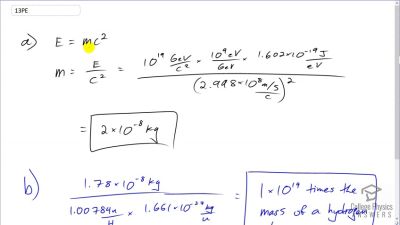 13PE
a) E = mc²
m = E / c² = (10¹⁹ GeV/c² × 10⁹ eV/GeV × 1.602×10⁻¹⁹ J/eV) / (2.998×10⁸ m/s/c)²
= 2×10⁻⁸ kg
b) 1.78×10⁻⁸ kg / (1.00784 u/H × 1.661×10⁻²⁷ kg/u) = 1×10¹⁹ times the
mass of a hydrogen
College Physics
ANSWERS